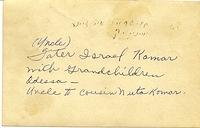 (Uncle)
Israel Komar
with Grandchildren
Odessa –
Uncle to cousin Nuta Komar.